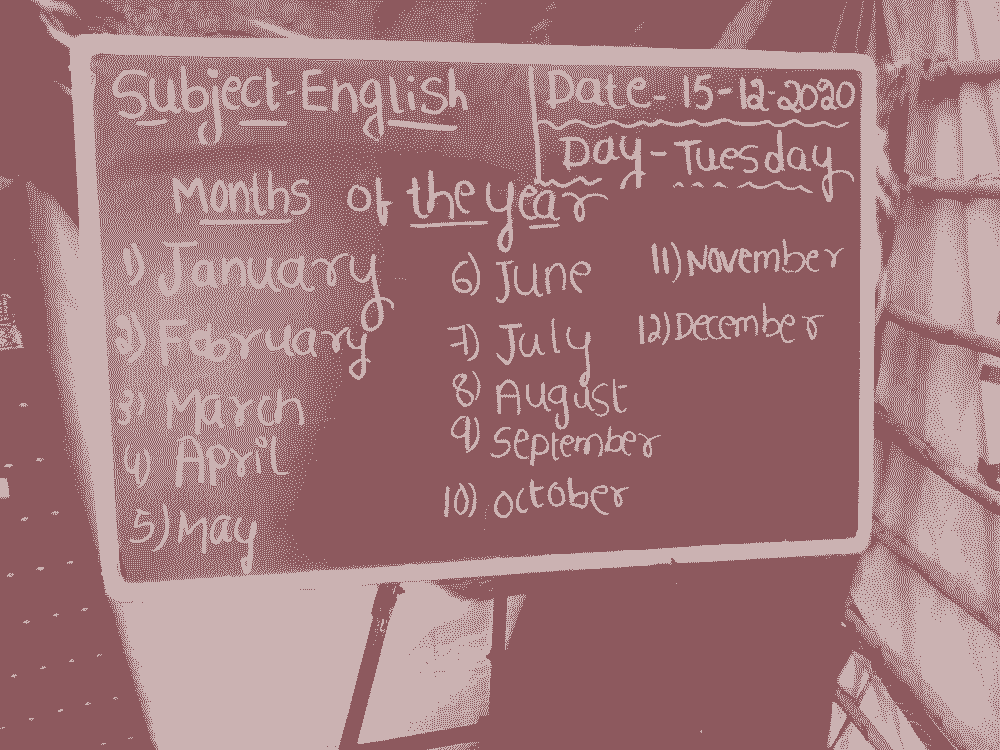 Subject-English
Date-15-12-2020
Day-Tuesday
Months of the year
1) January
2) February
3) March
4) April
5) May
6) June
7) July
8) August
9) September
10) october
11) November
12) December